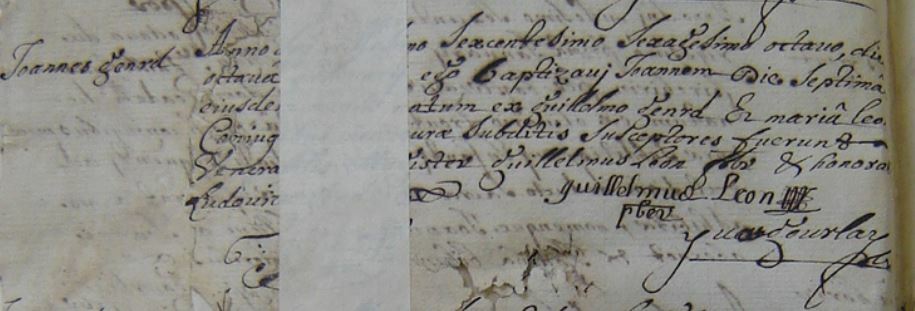 Joannes Genrd Anno mo Sexcentesimo Sexagesimo octavo, die
octava ego baptizavj Joannem Die Septimâ
eiusde atum ex Guillelmo Genrd Et mariâ leo
Coniug uræ Subditis Susceptores fuerunt
Venera ister Guillelmus Leon pbr & honora
Ludovic
guillelmus Leon
pber